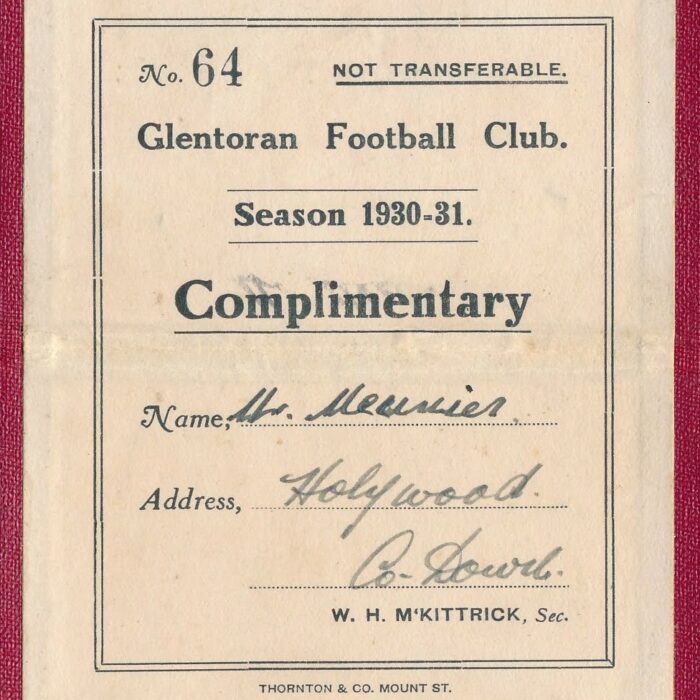 No. 64 NOT TRANSFERABLE.
Glentoran Football Club.
Season 1930-31.
Complimentary
Name, Mr. Meunier.
Address, Holywood.
Co- Down.
W. H. M'KITTRICK, Sec.
THORNTON & CO. MOUNT ST.